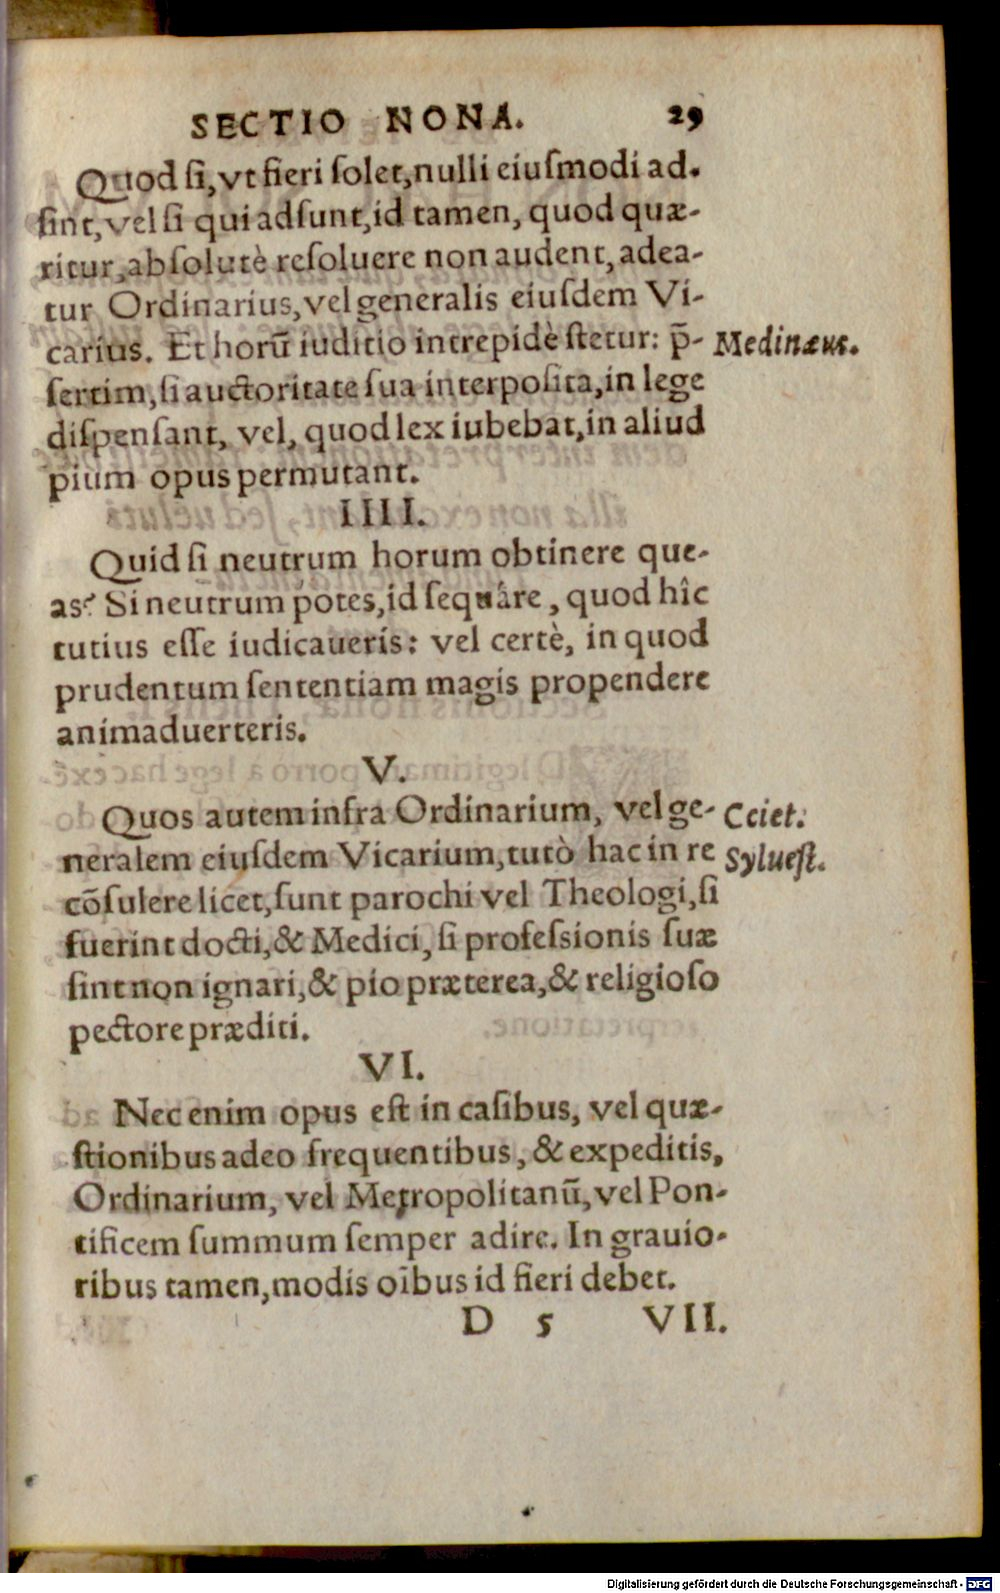 SECTIO NONA. 29
Quod ſi, vt fieri ſolet, nulli eiuſmodi ad.
ſint, vel ſi qui adſunt, id tamen, quod quæ-
ritur, abſolutè reſoluere non audent, adea-
tur Ordinarius, vel generalis eiuſdem Vi-
carius. Et horū iuditio intrepidè ſtetur: p̃- Medinæus.
ſertim, ſi auctoritate ſua interpoſita, in lege
diſpenſant, vel, quod lex iubebat, in aliud
pium opus permutant.
IIII.
Quid ſi neutrum horum obtinere que-
as? Si neutrum potes, id ſequâre, quod hîc
tutius eſſe iudicaueris: vel certè, in quod
prudentum ſententiam magis propendere
animaduerteris.
V.
Quos autem infra Ordinarium, vel ge- Cciet.
neralem eiuſdem Vicarium, tutò hac in re Sylueſt.
cōſulere licet, ſunt parochi vel Theologi, ſi
fuerint docti, & Medici, ſi profeſsionis ſuæ
ſint non ignari, & pio præterea, & religioſo
pectore præditi.
VI.
Nec enim opus eſt in caſibus, vel quæ-
ſtionibus adeo frequentibus, & expeditis,
Ordinarium, vel Metropolitanū, vel Pon-
tificem ſummum ſemper adire. In grauio-
ribus tamen, modis oībus id fieri debet.
D 5 VII.
Digitalisierung gefördert durch die Deutsche Forschungsgemeinschaft - DFG